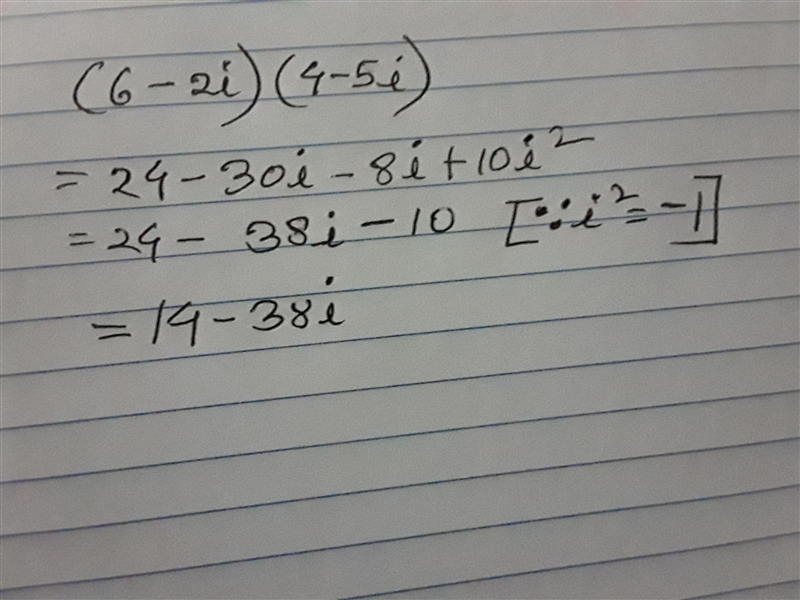 (6-2i)(4-5i)
= 24 - 30i - 8i + 10i²
= 24 - 38i - 10 [∵ i² = -1]
= 14 - 38i